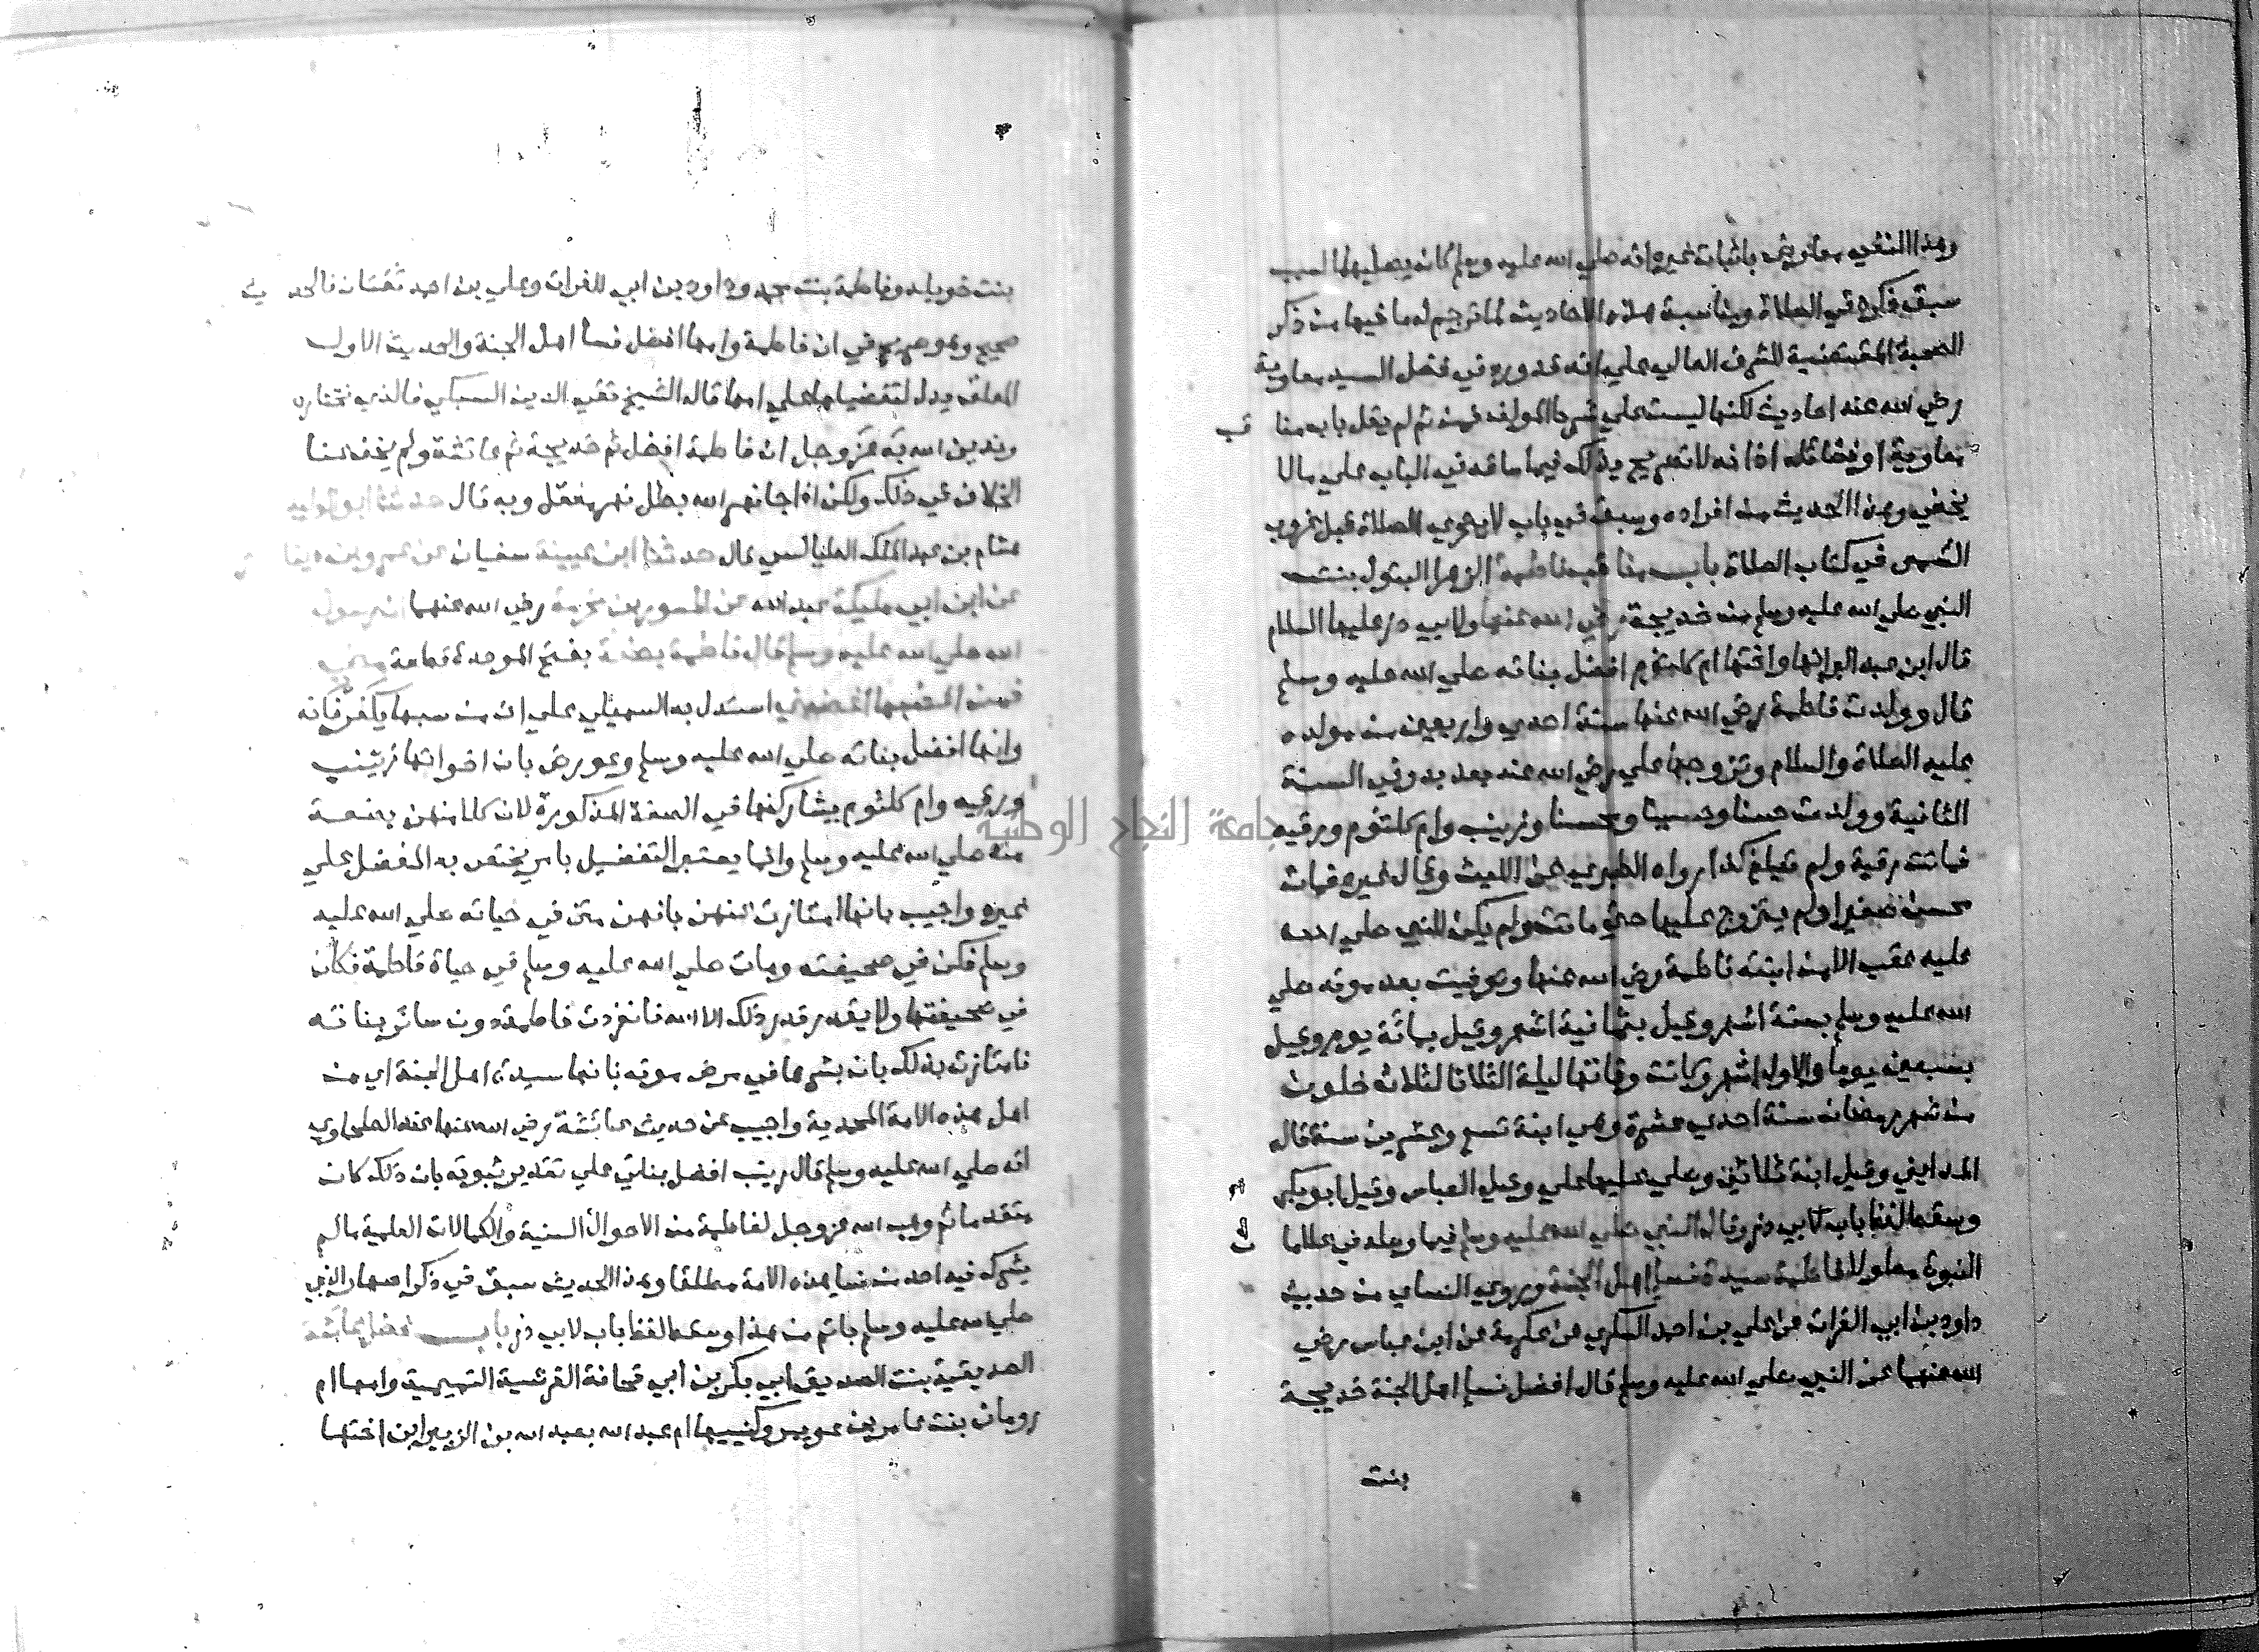 وهذا النفي معارض باثبات غيره انه صلي الله عليه وسلم كان يصليهما لسبب
سبق ذكره في الصلاة ومناسبة هذه الاحاديث لما ترجم له ما فيها من ذكر
الصحبة المقتضية للشرف العالي علي انه قد ورد في فضل السيد معاوية
رضي الله عنه احاديث لكنها ليست علي شرط المولف فمن ثم لم يقل باب منا قب
معاوية او فضائله اذ انه لا تصريح بذلك فيما ساقه في الباب علي مالا
يخفي وهذا الحديث من افراده وسبق في باب لا يتحري الصلاة قبل غروب
الشمس في كتاب الصلاة باب مناقب فاطمة الزهرا البتول بنت
النبي صلي الله عليه وسلم من خديجة رضي الله عنها ولابي ذر عليها السلام
قال ابن عبد البر انها واختها ام كلثوم افضل بناته صلي الله عليه وسلم
قال وولدت فاطمة رضي الله عنها سنة احدي واربعين من مولده
عليه الصلاة والسلام وتزوجها علي رضي الله عنه بعد بدر في السنة
الثانية وولدت حسنا وحسينا ومحسنا وزينب وام كلثوم ورقيه
فماتت رقية ولم تبلغ كذا رواه الطبري عن الليث وقال غيره فمات
محسن صغيرا ولم يتزوج عليها حتي ماتت ولم يكن للنبي صلي الله
عليه عقب الا من ابنته فاطمة رضي الله عنها وتوفيت بعد موته صلي
الله عليه وسلم بستة اشهر وقيل بثمانية اشهر وقيل بمائة يوم وقيل
بسبعين يوما والاول اشهر وكانت وفاتها ليلة الثلاثا لثلاث خلون
من شهر رمضان سنة احدي عشرة وهي ابنة تسع وعشرين سنة قاله
المدايني وقيل ابنة ثلاثين وصلي عليها علي وقيل العباس وقيل ابو بكر
وسقط لفظ باب لابي ذر وقال النبي صلي الله عليه وسلم فيما وصله في علاما ت
النبوة مطولا فاطمة سيدة نسا اهل الجنة وروي النساي من حديث
داود بن ابي الفرات عن علي بن احمد السكري عن عكرمة عن ابن عباس رضي
الله عنهما عن النبي صلي الله عليه وسلم قال افضل نسا اهل الجنة خديجة
بنت
بنت خويلد وفاطمة بنت محمد وداود بن ابي الفرات وعلي بن احمد ثقتان فالحد يث
صحيح وهو صريح في ان فاطمة وامها افضل نسا اهل الجنة والحديث الاول
المعلق يدل لتفضيلها علي امها قال الشيخ تقي الدين السبكي فالذي نختاره
وندين الله به عز وجل ان فاطمة افضل ثم خديجة ثم عائشة ولم يخف عنا
الخلاف في ذلك ولكن اذا جا نهر الله بطل نهر معقل وبه قال حدثنا ابو الوليد
هشام بن عبد الملك الطيالسي قال حدثنا ابن عيينة سفيان عن عمرو بن دينا ر
عن ابن ابي مليكة عبد الله عن المسور بن مخرمة رضي الله عنهما ان رسول
الله صلي الله عليه وسلم قال فاطمة بضعة بفتح الموحدة قطعة مني
فمن اغضبها اغضبني استدل به السهيلي علي ان من سبها يكفر فانه
وانها افضل بناته صلي الله عليه وسلم وعورض بان اخواتها زينب
ورقيه وام كلثوم يشاركنها في الصفة المذكورة لان كلا منهن بضعة
منه صلي الله عليه وسلم وانما يعتبر التفضيل بامر يختص به المفضل علي
غيره واجيب بانها امتازت عنهن بانهن متن في حياته صلي الله عليه
وسلم فكن في صحيفته ومات صلي الله عليه وسلم في حياة فاطمة فكان
في صحيفتها ولا يقدر قدر ذلك الا الله فانفردت فاطمة دون سائر بناته
فامتازت بذلك بان بشرها في مرض موته بانها سيدة اهل الجنة اي من
اهل هذه الامة المحمدية واجيب عن حديث عائشة رضي الله عنها عند الطحاوي
انه صلي الله عليه وسلم قال زينب افضل بناتي علي تقدير ثبوته بان ذلك كان
متقدما ثم وهب الله عز وجل لفاطمة من الاحوال السنية والكمالات العلمية مالم
يشركه فيه احد من نسا هذه الامة مطلقا وهذا الحديث سبق في ذكر اصهار النبي
صلي الله عليه وسلم باتم من هذا وسقط لفظ باب لابي ذر باب فضل عائشة
الصديقية بنت الصديق ابي بكر بن ابي قحافة القرشية التيمية وامها ام
رومان بنت عامر بن عويمر وكنيتها ام عبد الله بعبد الله بن الزبير ابن اختها
جامعة النجاح الوطنية